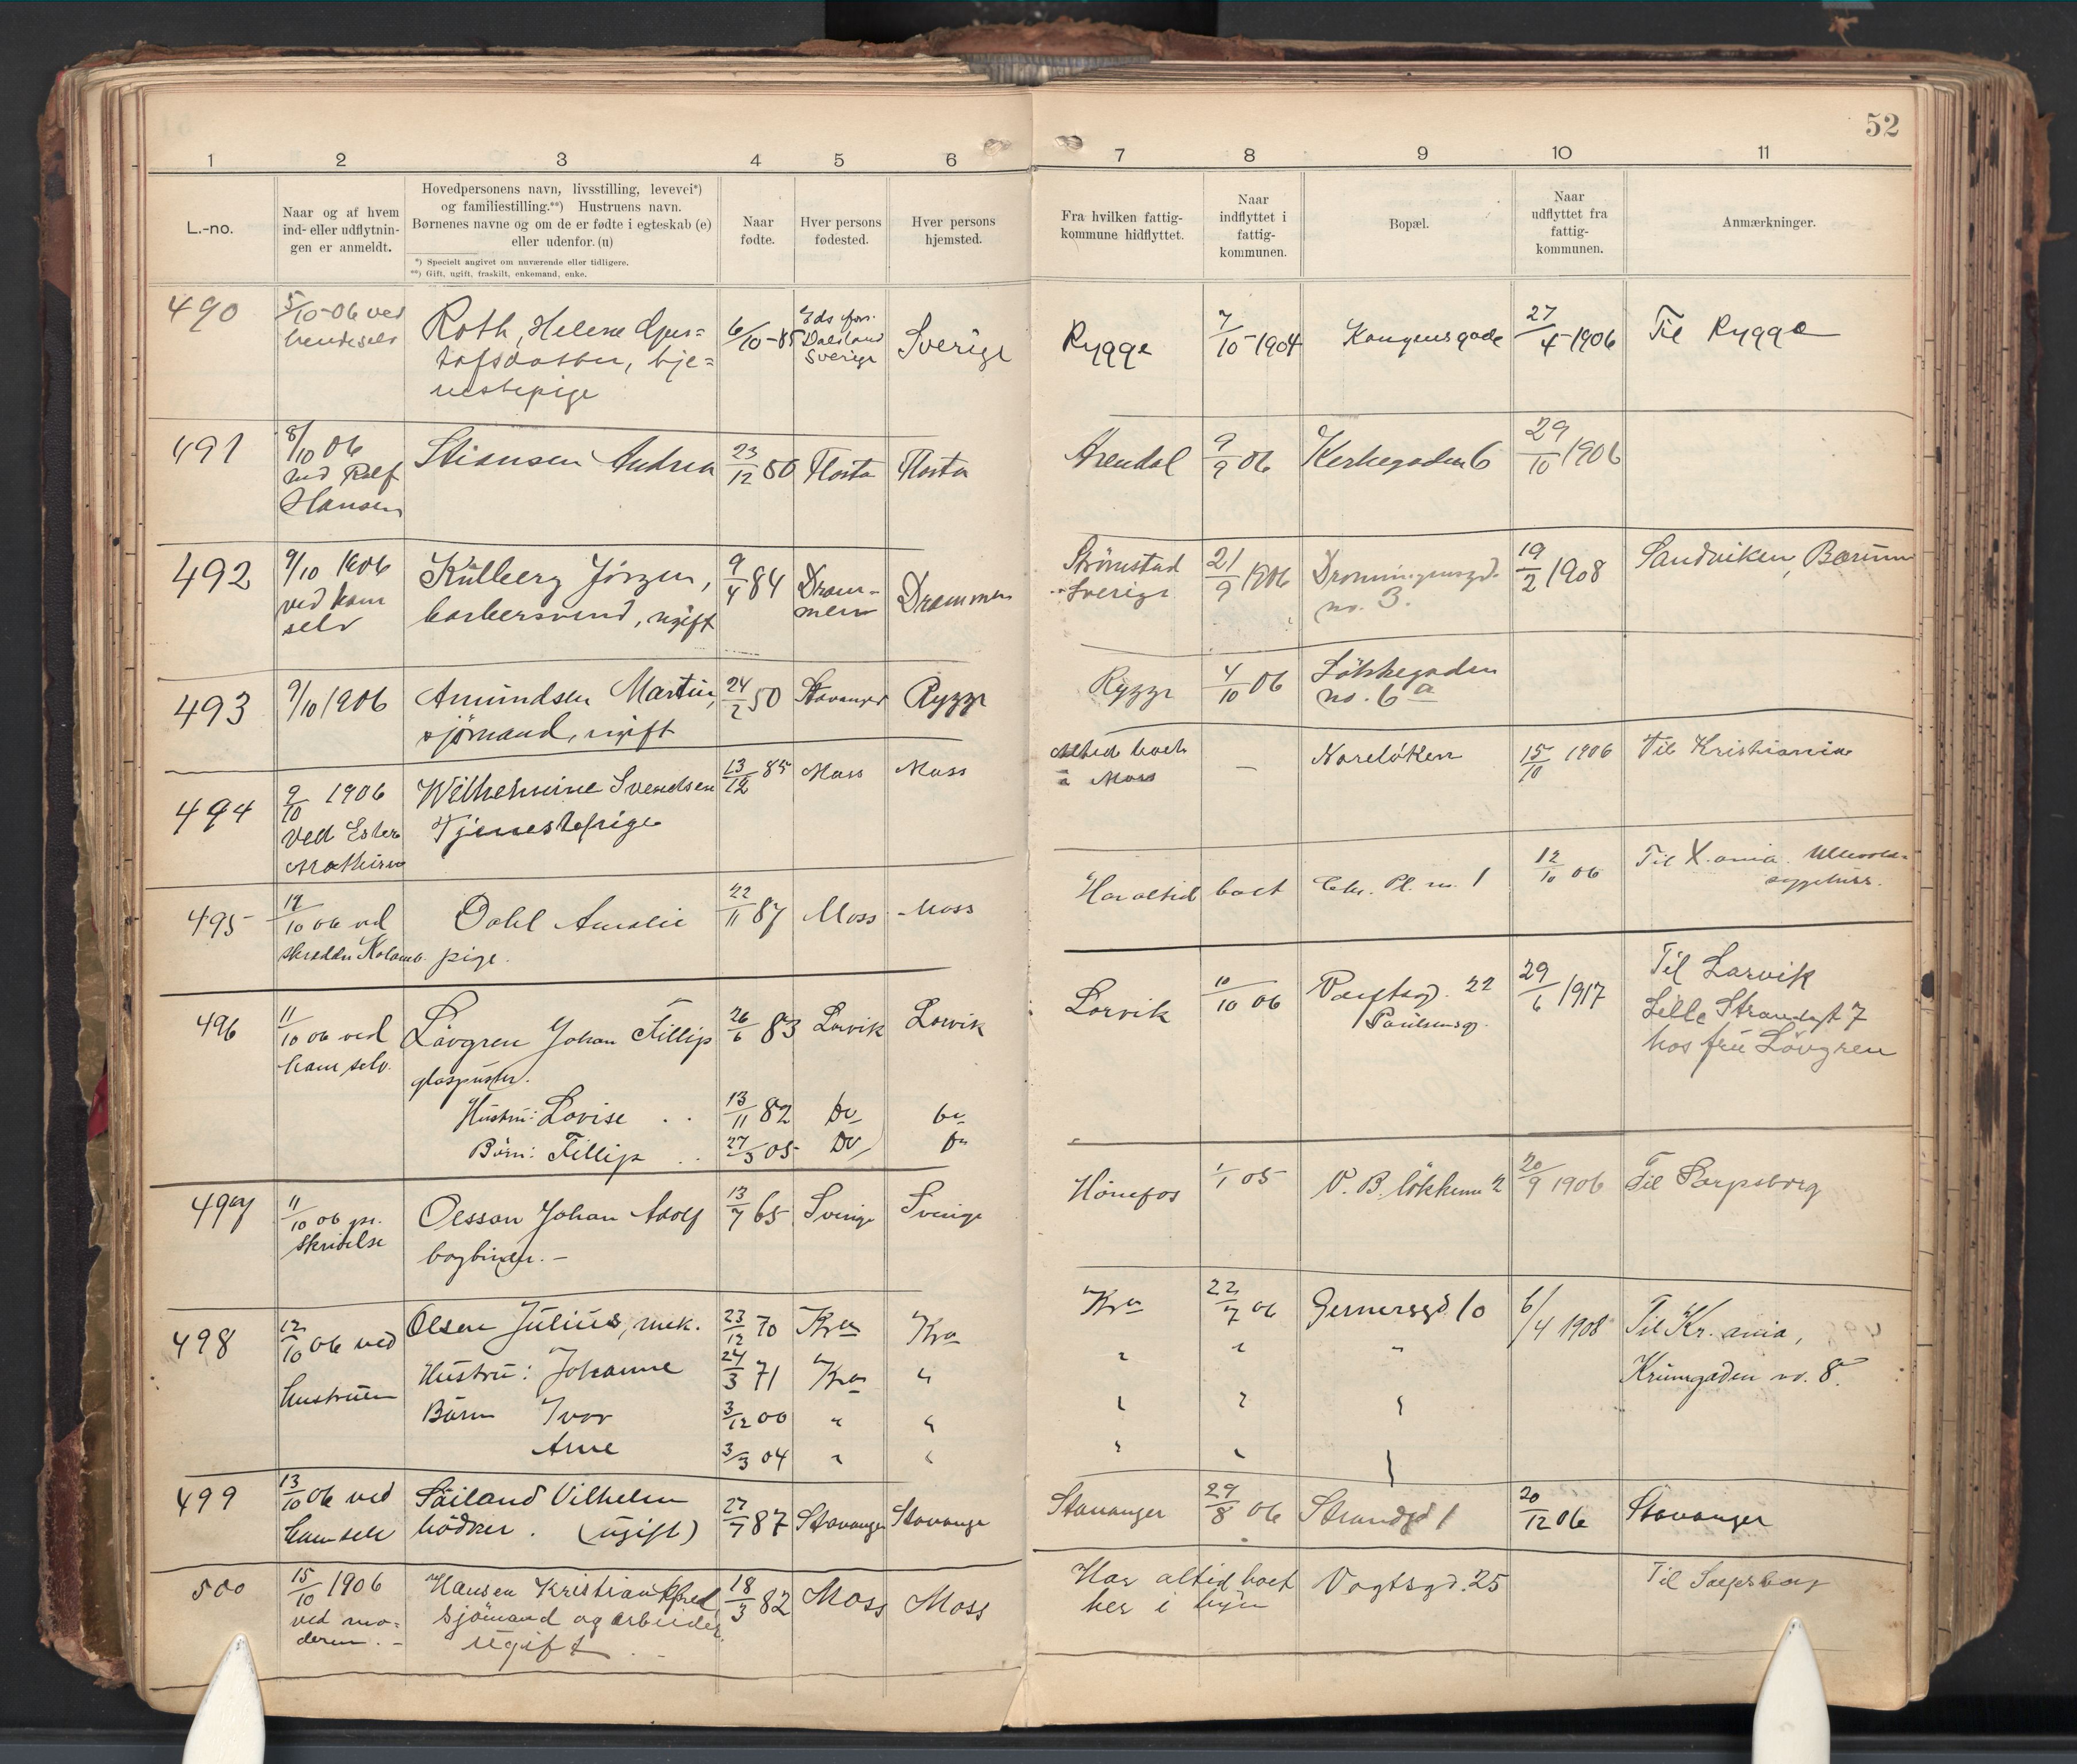 52
1 2 3 4 5 6 7 8 9 10 11
L.-no.
Naar og af hvem
ind- eller udflytnin-
gen er anmeldt.
Hovedpersonens navn, livsstilling, levevei*)
og familiestilling.**) Hustruens navn.
Børnenes navne og om de er fødte i egteskab (e)
eller udenfor. (u)
*) Specielt angivet om nuværende eller tidligere.
**) Gift, ugift, fraskilt, enkemand, enke.
Naar
fødte.
Hver persons
fødested.
Hver persons
hjemsted.
Fra hvilken fattig-
kommune hidflyttet.
Naar
indflyttet i
fattig-
kommunen.
Bopæl.
Naar
udflyttet fra
fattig-
kommunen.
Anmærkninger.
490
5/10-06 ved
hende selv
Roth, Helene Gus=
tafsdatter, tje=
nestepige
6/10-85
Dalsland
Sverige
Sverige
Rygge
7/10-1904
Kongensgade
27/4-1906
Til Rygge
491
8/10 06
ved Rolf
Hansen
Stiansen Andrea
23/12 80
Flosta
Flosta
Arendal
9/9 06
Kirkegaden 6
29/10 1906
492
9/10 1906
ved ham
selv
Külberg Jörgen,
barbersvend, ugift
9/4 84
Dram-
men
Drammen
Strömstad
Sverige
21/9 1906
Dronningensgd.
no. 3.
19/2 1908
Sandviken, Bærum
493
9/10 1906
Amundsen Martin,
sjömand, ugift
24/2 50
Stavanger
Rygge
Rygge
4/10 06
Lökkegaden
no. 6 a
494
9/10 1906
Ved Ester
Mathisen
Wilhelmine Svendsen
Tjenestepige
13/12 85
Moss
Moss
Altid boet
i Moss
—
Noreløken
15/10 1906
Til Kristiania
495
12/10 06 ved
skrædder
Dahl Amalie
pige.
22/11 87
Moss
Moss
Har altid boet
Chr. Pl. no. 1
12/10 06
Til X.ania. Ullevolds-
sygehus.
496
11/10 06 ved
ham selv.
Lövgren Johan Fillip
glaspuster.
26/6 83
Larvik
Larvik
Hustru: Lovise
13/11 82
Do
Do
Börn: Fillip
27/3 05
Do
Do
Larvik
10/10 06
Vogtsgd. 22
Paulsensg.
29/6 1917
Til Larvik
Lille Strandgt 7
hos frü Lövgren
497
11/10 06 pr.
skrivelse
Olsson Johan Adolf
bogbinder. —
13/7 65
Sverige
Sverige
Hönefos
1/1 05
V. B. lökken 2
20/9 1906
Til Sarpsborg
498
12/10 06 ved
hustruen
Olsen Julius, mek.
23/12 70
Kra
Kra
Hustru: Johanne
24/3 71
Kra
"
Börn Ivar
3/12 00
"
"
Arne
3/3 04
"
"
Kra
22/7 06
Gernersgd. 10
6/4 1908
Til Kr. ania,
Krumgaden no. 8.
499
13/10 06 ved
ham selv
Säiland Vilhelm
bödker. (ugift)
27/7 87
Stavanger
Stavanger
Stavanger
29/8 06
Strandgd 1
20/12 06
Stavanger
500
15/10 1906
ved mo=
deren. -
Hansen Kristian Alfred
sjömand og arbeider.
ugift
18/3 82
Moss
Moss
Har altid boet
her i byen
Vogtsgd. 25
Til Sarpsborg